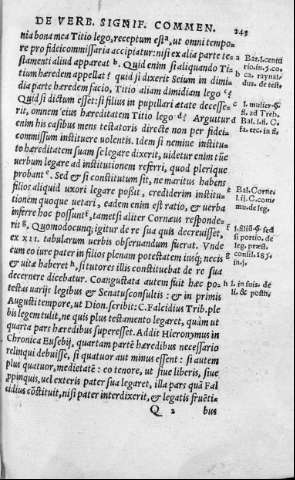 DE VERB. SIGNIF. COMMEN. 245
nia bona mea Titio lego, receptum est a, ut omni tempo
re pro fideicommissaria accipiatur: nisi ex alia parte te
stamenti aliud appareat b. Quid enim si aliquando Ti
tium hæredem appellat? quid si dixerit Seium in dimi
dia parte hæredem facio, Titio aliam dimidiam lego c?
Quid si dictum esset: si filius in pupillari ætate decesse
rit, omnem eius hæreditatem Titio lego d? Arguitur
enim his casibus mens testatoris directe non per fidei
commissum instituere volentis. Idem si nemine institu
to hæreditatem suam se legare dixerit, uidetur enim tūc
uerbum legare ad institutionem referri, quod plerique
probant e. Sed & si constitutum sit, ne maritus habens
filios aliquid uxori legare possit, crediderim institu
tionem quoque uetari, eadem enim est ratio, & uerba
inferre hoc possunt f, tametsi aliter Corneus responde
rit g. Quomodocunq; igitur de re sua quis decreuisset,
ex XII. tabularum uerbis obseruandum fuerat. Vnde
cum eo iure pater in filios plenam potestatem insuper necis
& uitæ haberet h, si tutores illis constituebat de re sua
decernere dicebatur. Coangustata autem fuit hæc po-
testas uarijs legibus & Senatusconsultis: & in primis
Augusti tempore, ut Dion. scribit: C. Falcidius Trib. ple
bis legem tulit, ne quis plus testamento legaret, quàm ut
quarta pars hæredibus superesset. Addit Hieronymus in
Chronica Eusebij, quartam partē hæredibus necessario
relinqui debuisse, si quatuor aut minus essent: si autem
plus quatuor, medietatē: eo tenore, ut siue liberis, siue
ppinquis, uel exteris pater sua legaret, illa pars quā Fal
cidius cōstituit, nisi pater interdixerit, & legatis fructi-
Q 2 bus
a Bar. l. centu
rio. in 5. co.
b
ca. raynal
dus. de test.
c l. mulier §
fi. ad Treb.
d Bal. l. fi. C.
e
f Bal. Corne.
l. ij. C. com
mu. de leg.
g
de leg. præst.
consil. 185.
h l. in suis. de
li. & posth.